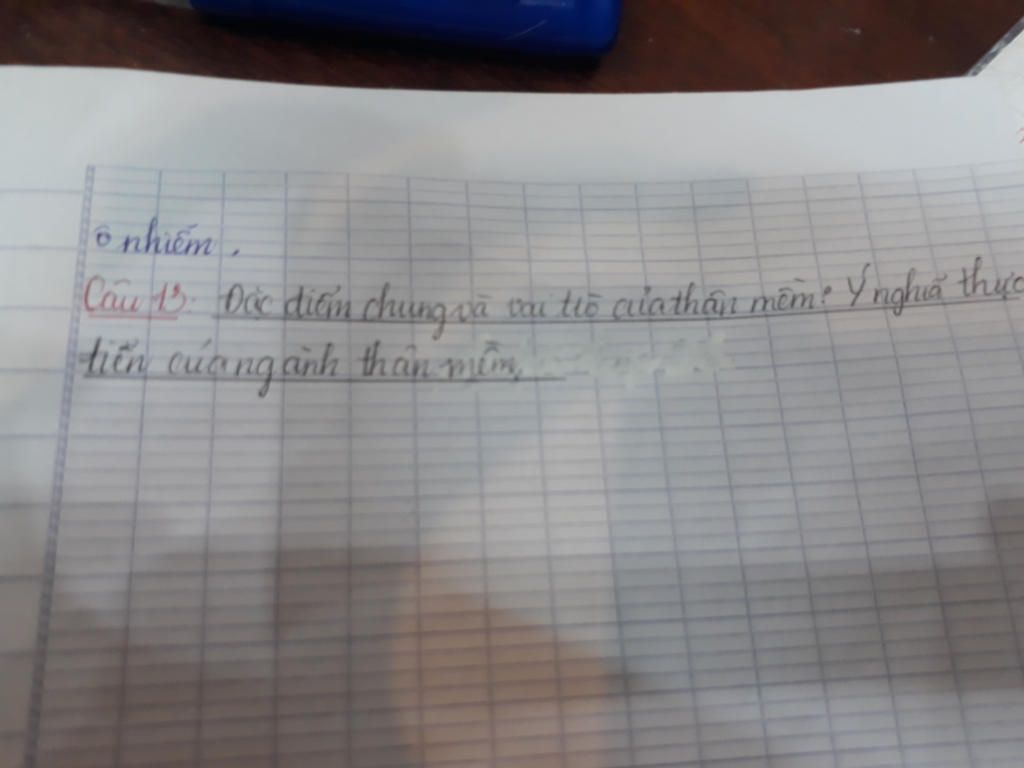 ô nhiễm.
Câu 13: Đặc điểm chung và vai trò của thân mềm? Ý nghĩa thực
tiễn của ngành thân mềm.